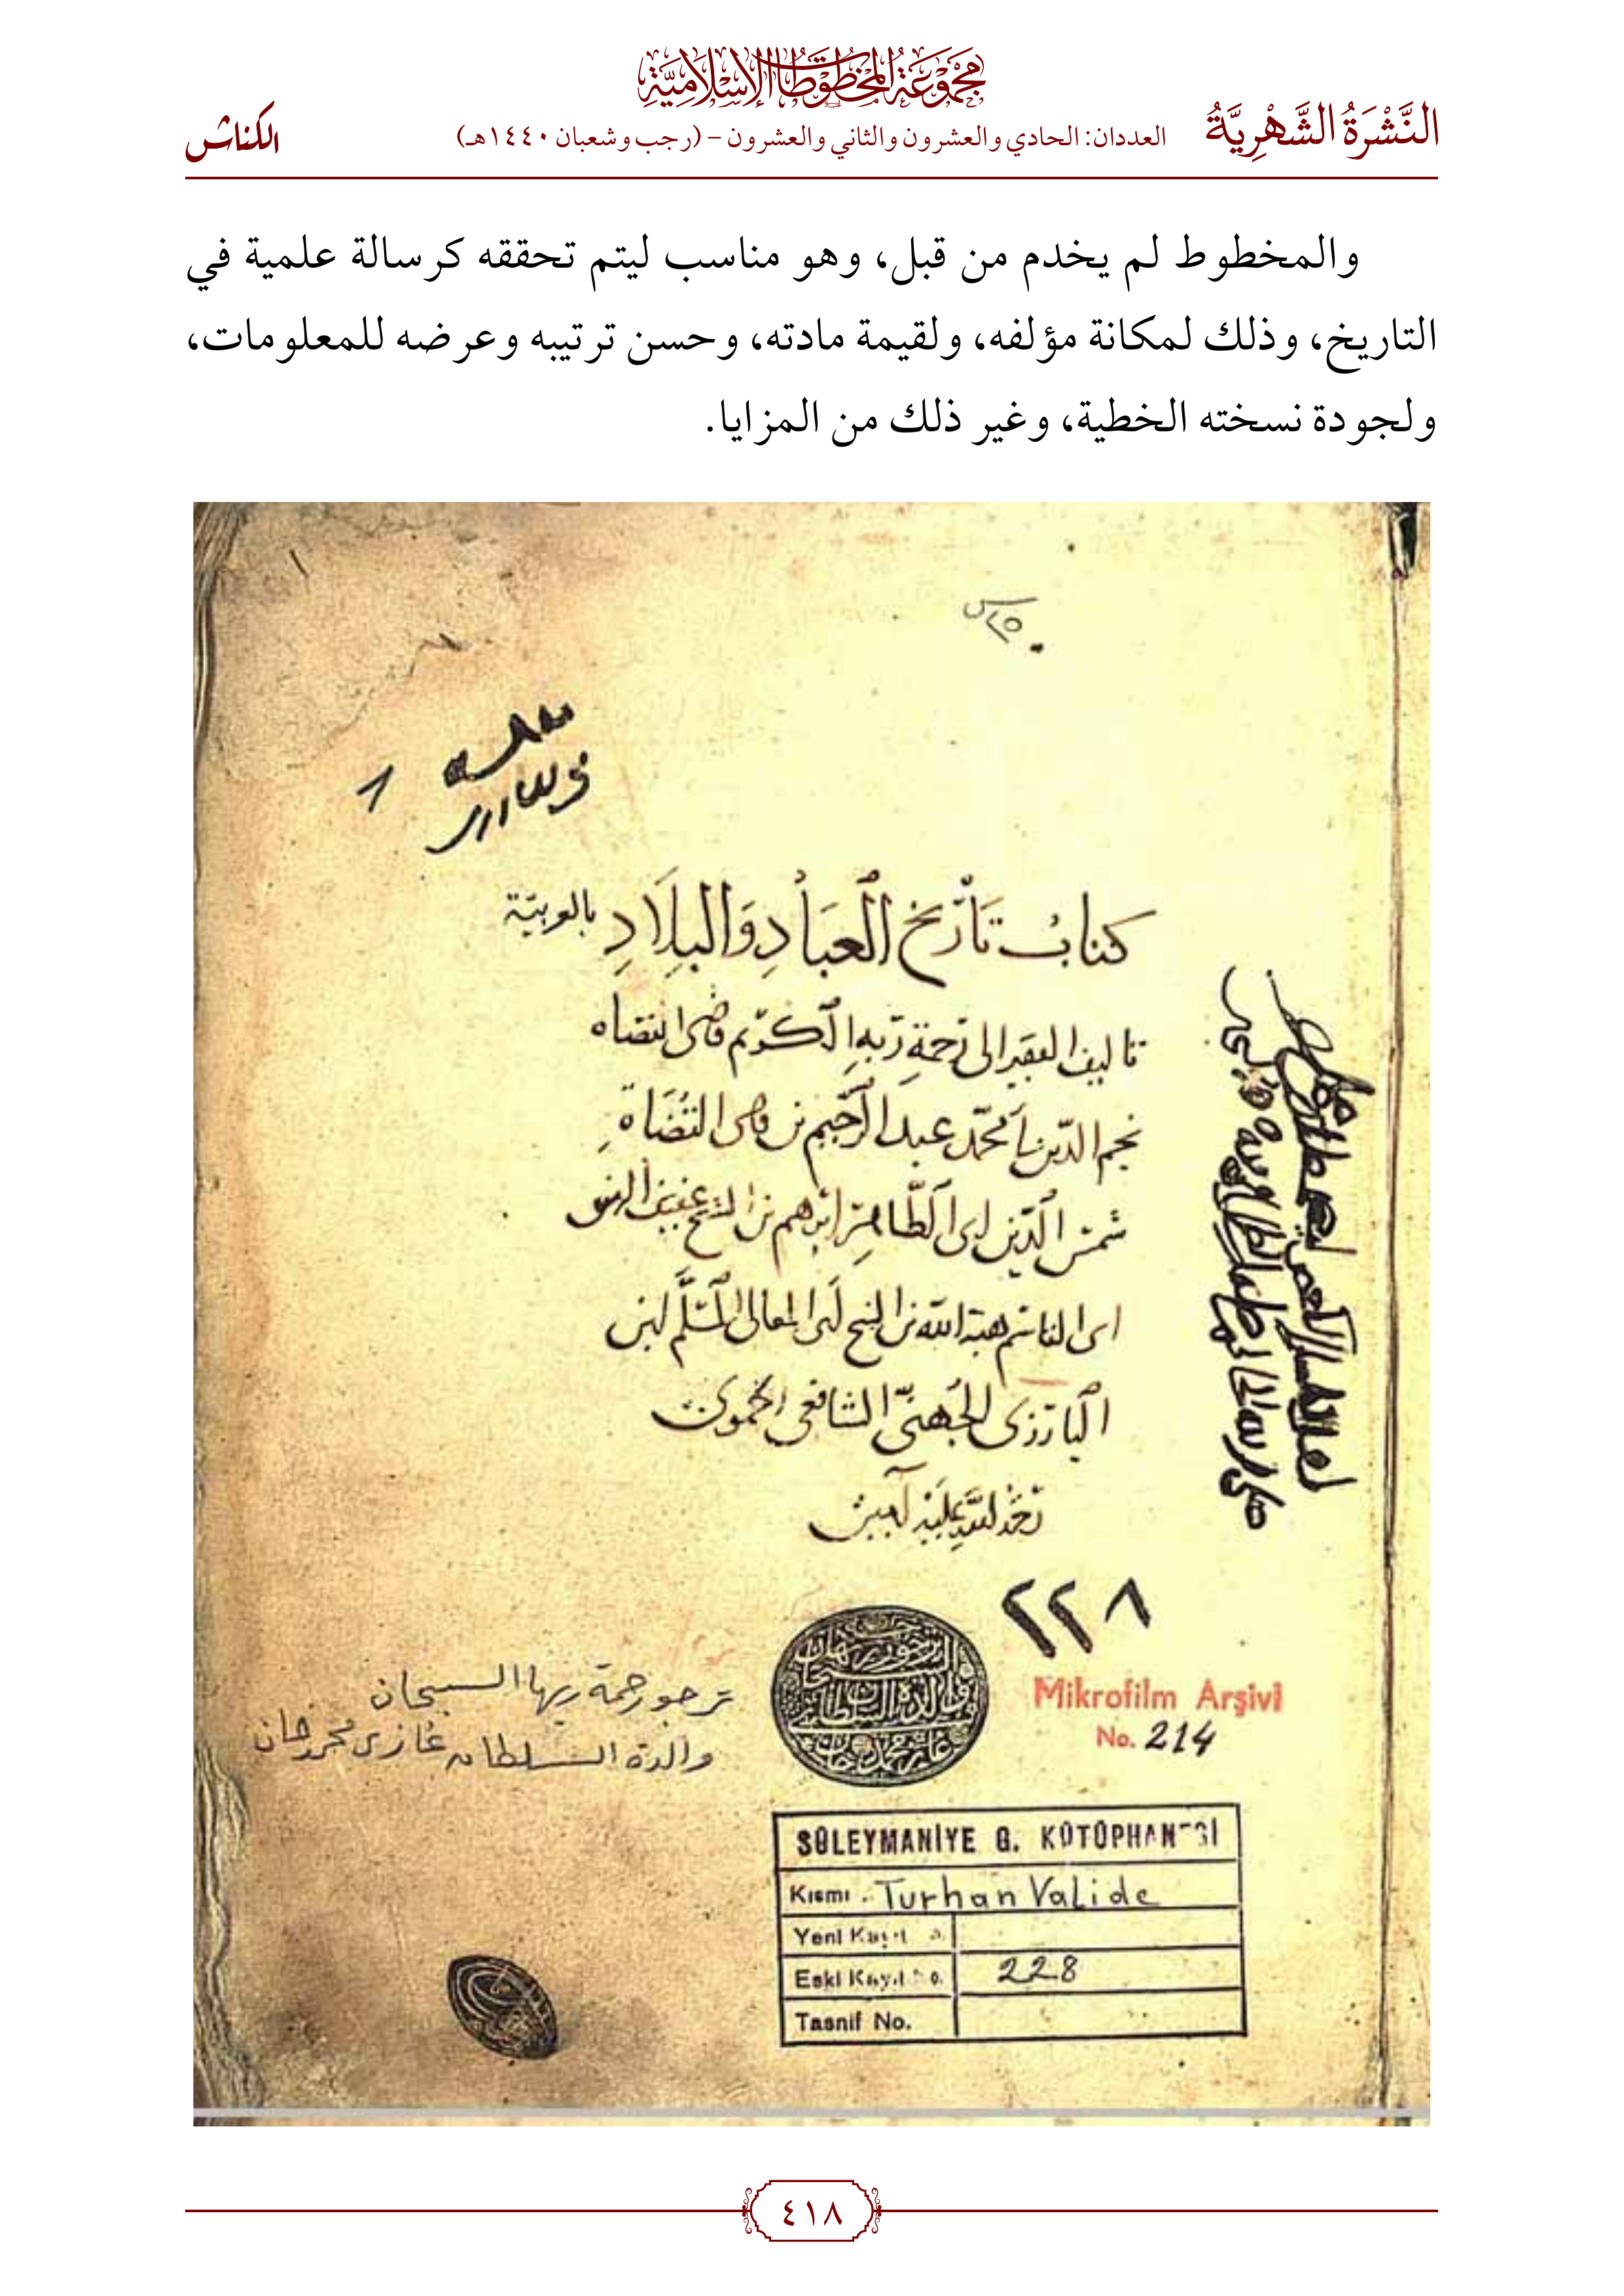 مجموعة المخطوطات الإسلامية
النَّشْرَةُ الشَّهْرِيَّةُ
العددان: الحادي والعشرون والثاني والعشرون – (رجب وشعبان ١٤٤٠هـ)
الكناش
والمخطوط لم يخدم من قبل، وهو مناسب ليتم تحققه كرسالة علمية في
التاريخ، وذلك لمكانة مؤلفه، ولقيمة مادته، وحسن ترتيبه وعرضه للمعلومات،
ولجودة نسخته الخطية، وغير ذلك من المزايا.
كتاب تأريخ العباد والبلاد بالعربية
تاليف الفقير الى رحمة ربه الكريم قاضى القضاه
نجم الدين ابى محمد عبد الرحيم بن قاضى القضاة
شمس الدين ابى الطاهر ابرهيم بن الشيخ عفيف الدين
ابى القاسم هبة الله بن الشيخ ابى المعالى المسلم ابن
البارزى الجهنى الشافعى الحموى
رحمة الله عليه آمين
٢٢٨
Mikrofilm Arşivi
No. 214
ترجو رحمة ربها السبحان
والدة السلطان غازى محمد خان
SÜLEYMANİYE G. KÜTÜPHANESİ
Kısmı . Turhan Valide
Yeni Kayıt No.
Eski Kayıt No. 228
Tasnif No.
٤١٨